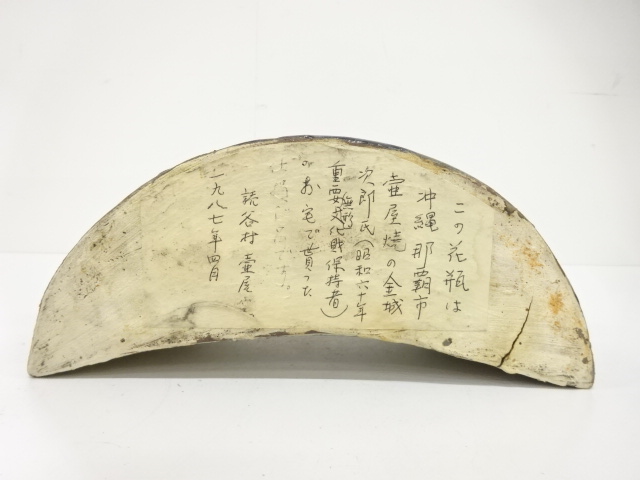 この花瓶は
沖縄 那覇市
壺屋焼の金城
次郎氏(昭和六十年
重要無形文化財保持者)
のお宅で貰った
読谷村 壺屋
一九八七年四月